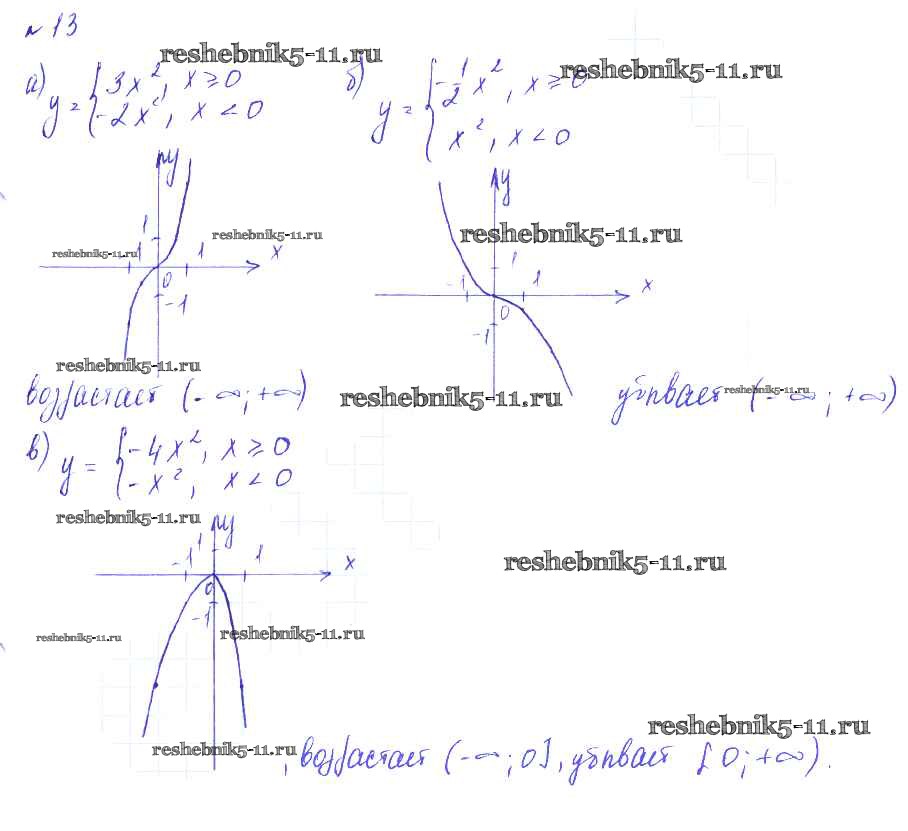 № 13
reshebnik5-11.ru
а) y = { 3x², x ≥ 0
-2x², x < 0
б) y = { -1/2 x², x ≥ 0
x², x < 0
reshebnik5-11.ru
y
1
reshebnik5-11.ru
reshebnik5-11.ru
-1 1 x
0
-1
reshebnik5-11.ru
y
reshebnik5-11.ru
1
-1 1 x
0
-1
возрастает (-∞; +∞)
reshebnik5-11.ru
убывает (-∞; +∞)
reshebnik5-11.ru
в) y = { -4x², x ≥ 0
-x², x < 0
reshebnik5-11.ru
y
1
-1 1 x
0
-1
reshebnik5-11.ru
reshebnik5-11.ru
reshebnik5-11.ru
reshebnik5-11.ru
reshebnik5-11.ru
, возрастает (-∞; 0], убывает [0; +∞).